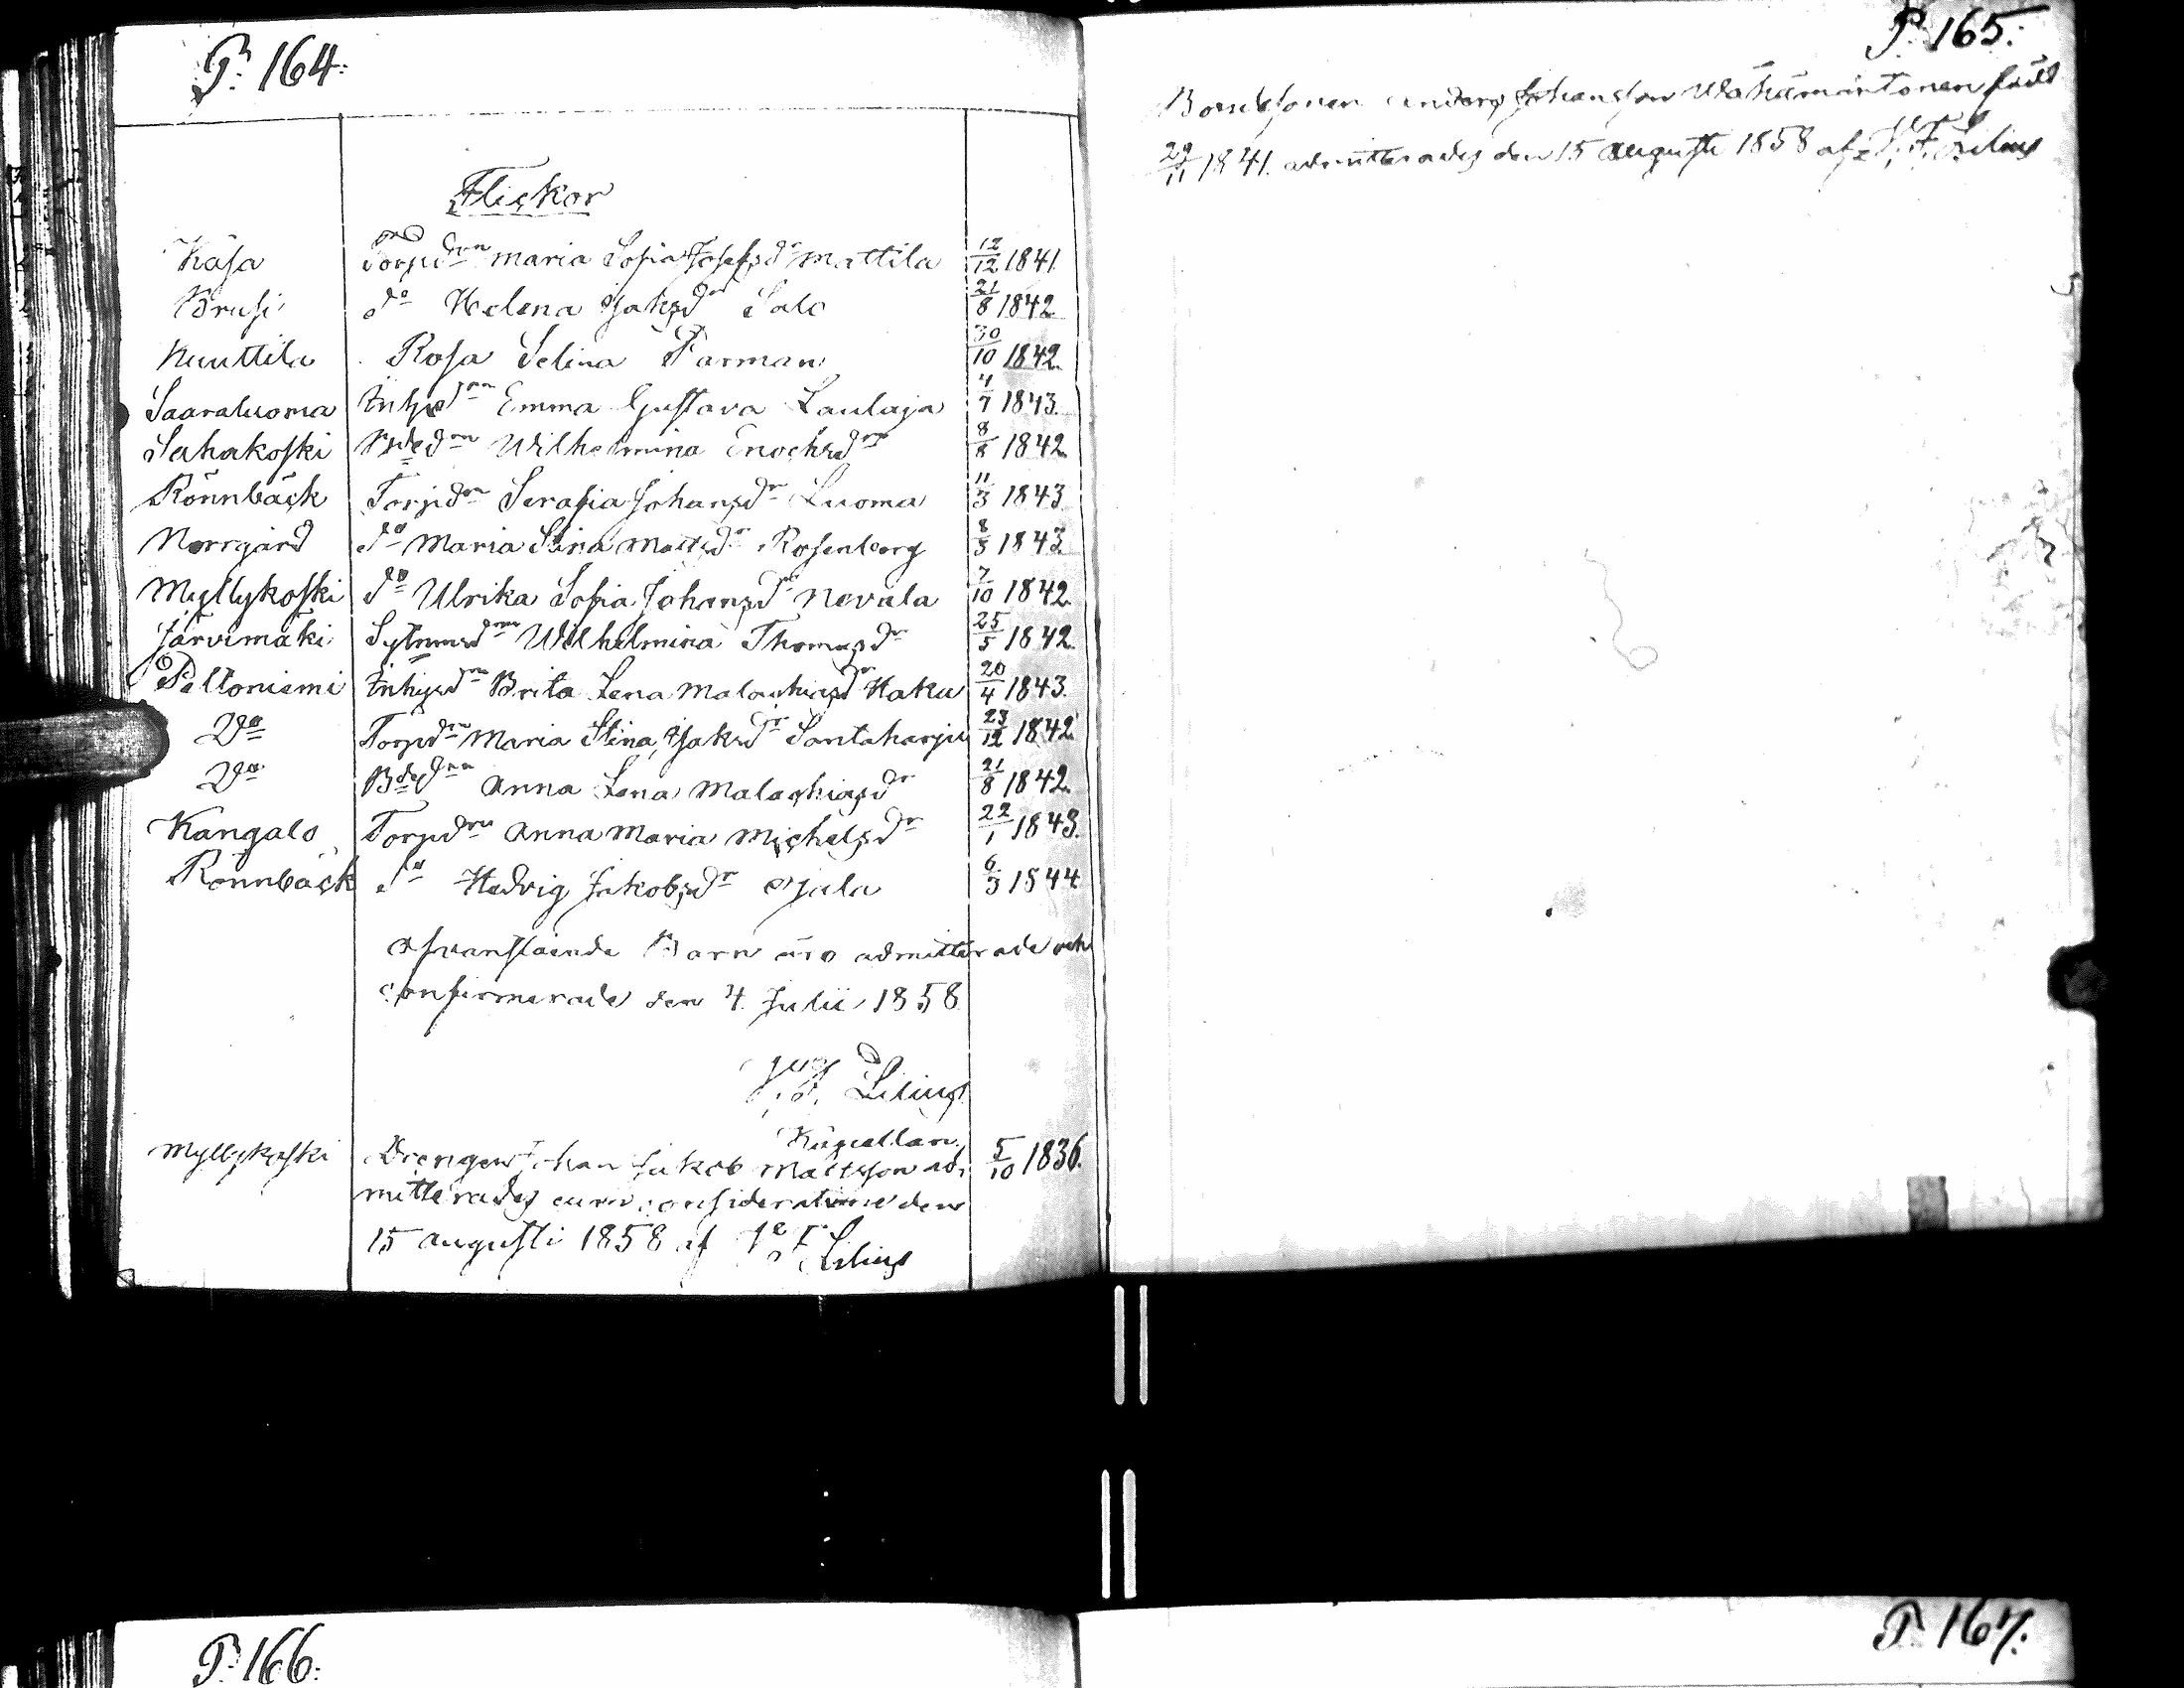 P. 164.
Flickor
Käsa Torpdrn Maria Sofia Josefsdr Mattila 12/12 1841
Brusi do Helena Isaksdr Salo 21/8 1842
Knuttila Rosa Selina Farman 30/10 1842
Saaraluoma Inhysdrn Emma Gustava Laulaja 4/7 1843
Sahakoski Wilhelmina Enochsdr 8/8 1842
Rönnbäck Torpdrn Serafia Johansdr Luoma 11/3 1843
Norrgård do Maria Stina Mattsdr Rosenberg 8/3 1843
Myllykoski do Ulrika Sofia Johansdr Nevala 7/10 1842
Järvimäki Sytnmsdrn Wilhelmina Thomasdr 25/5 1842
Peltoniemi Inhysdrn Brita Lena Malachiasdr Haku 20/4 1843
Do Torpdrn Maria Stina Isaksdr Santaharju 23/12 1842
Do Bdedrn Anna Lena Malachiasdr 21/8 1842
Kangalo Torpdrn Anna Maria Michelsdr 22/1 1843
Rönnbäck do Hedvig Jakobsdr Ojala 6/3 1844
Ofvanstående Barn äro admitterade och
confirmerade den 4. Julii 1858
Lilius
Kapellan
Myllykoski Drengen Johan Jakob Mattsson ad- 5/10 1836
mitterades cum consideratione den
15 Augusti 1858 af F. Lilius
P. 165.
Bondesonen Anders Johansson Wähämäntonen född
29/11 1841. admitterades den 15 Augusti 1858 af F. Lilius
P. 166.
P. 167.